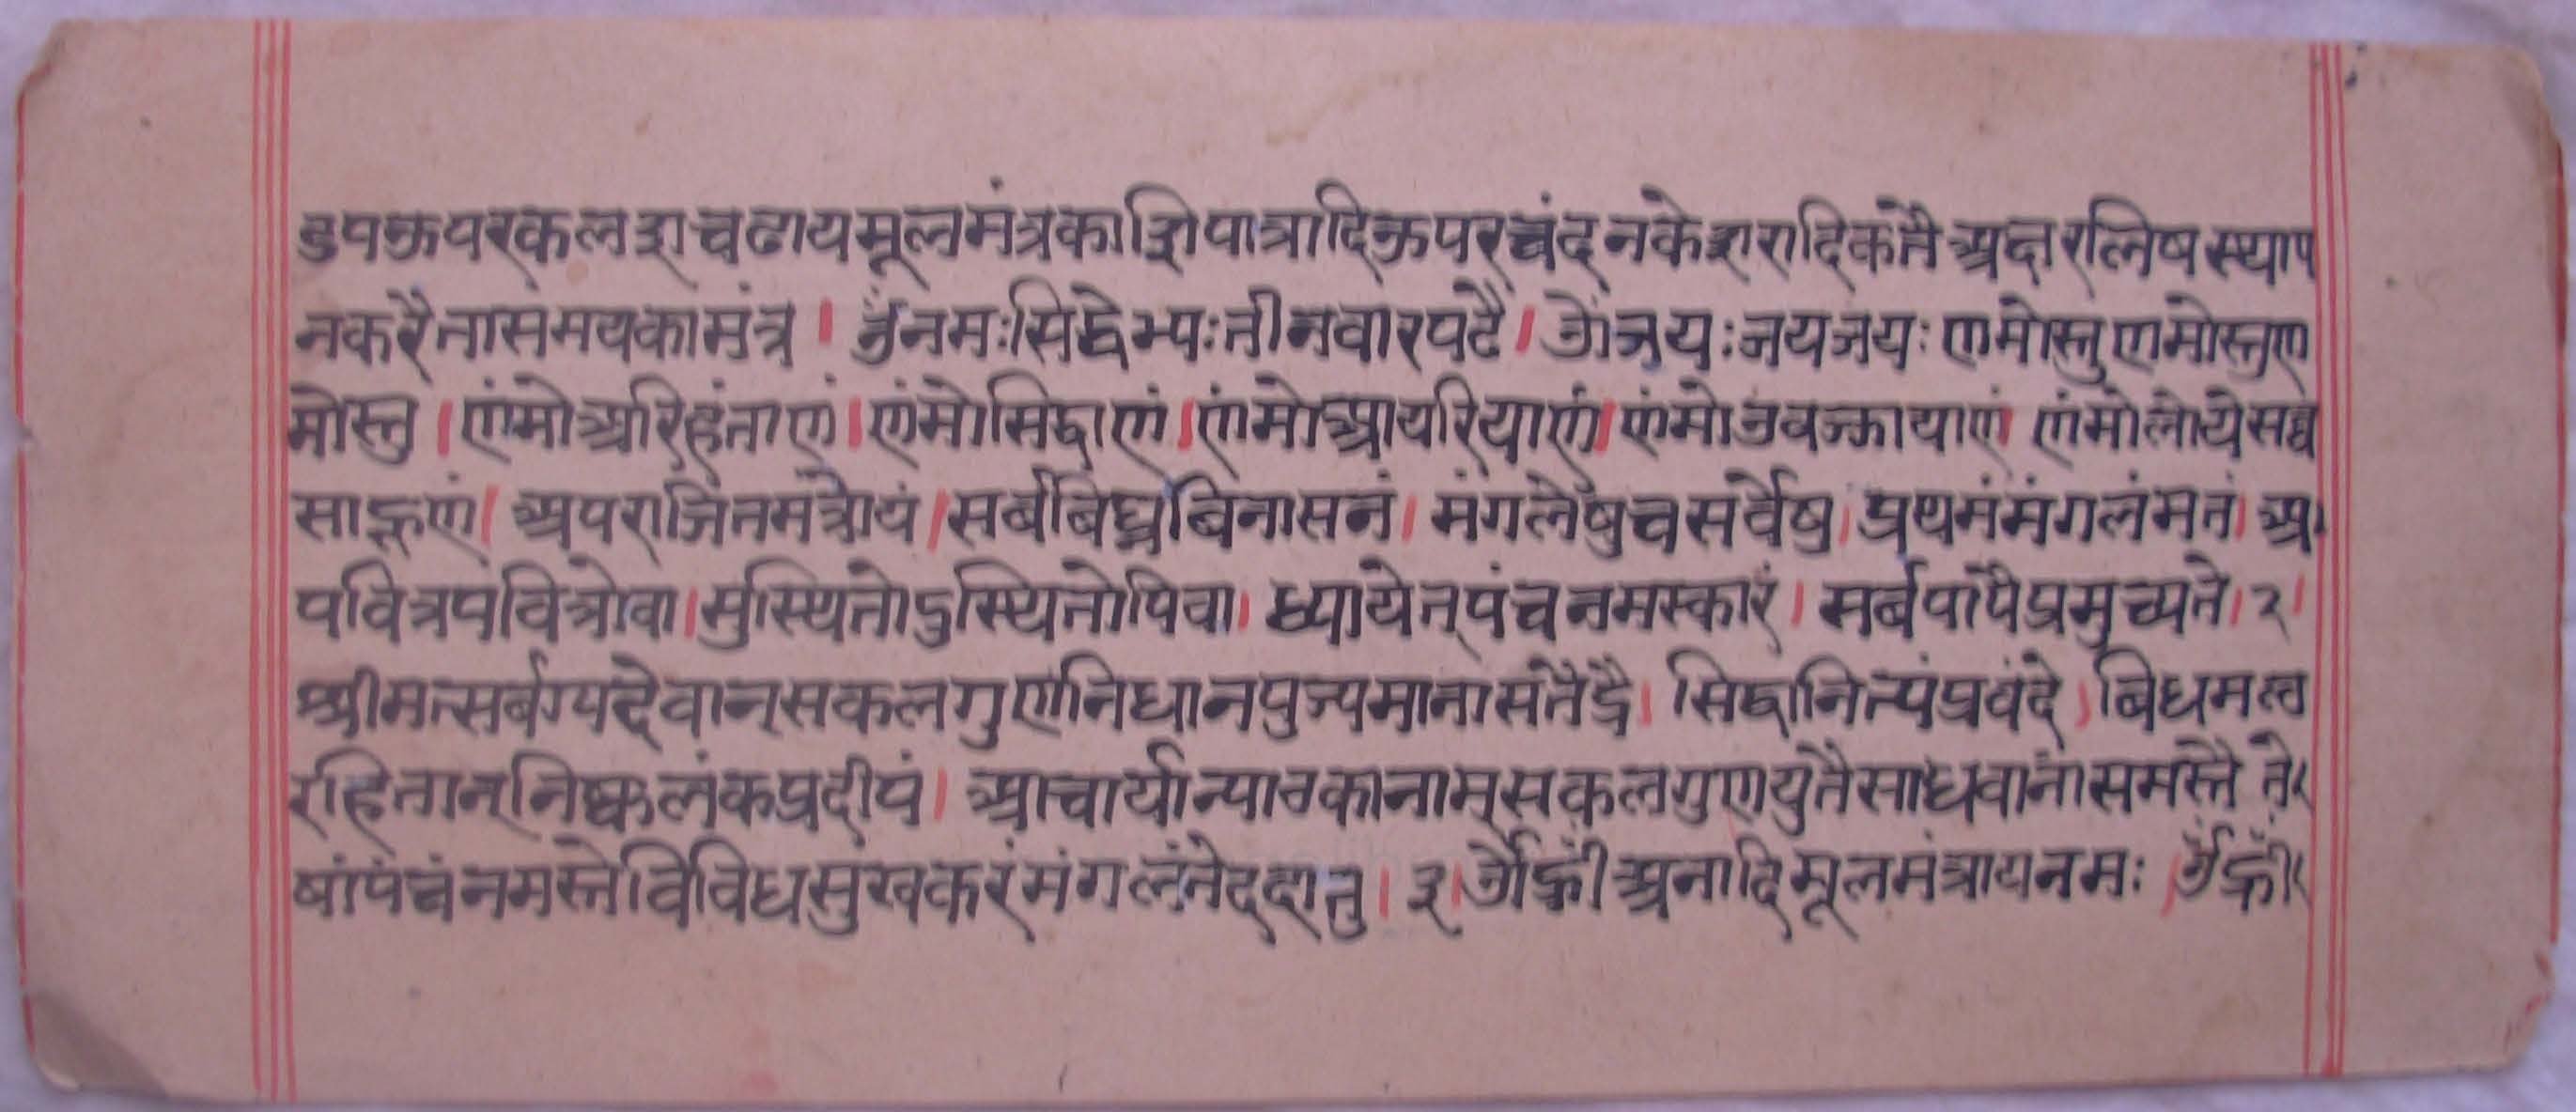 डपऊपरकलशचढायमूलमंत्रकाशिपात्रादिऊपरचंदनकेशरादिकतैअक्षरलिषस्थाप
नकरैतासंमयकामंत्र । ॐनमःसिद्धेभ्यःतीनवारपढै । ॐजयःजयजयः णमोस्तुणमोस्तुण
मोस्तु । णंमोअरिहंताणं । णंमोसिद्धाणं । णंमोआयरियाणं । णंमोउवज्झायाणं णंमोलोयेसव्व
साहूणं । अपराजितमंत्रोयं । सर्बबिघ्नबिनासनं । मंगलेषुचसर्वेषु । प्रथमंमंगलंमतं । अ
पवित्रपवित्रोवा । सुस्थितोऽस्थितोपिवा । ध्यायेत्पंचनमस्कारं । सर्बपापैप्रमुच्यते । २ ।
श्रीमत्सर्बग्यदेवान्सकलगुणनिधानपुज्यमानासतैद्रै । सिद्धानित्यंप्रवंदे । बिधमत्व
रहितान्निष्कलंकप्रदीपं । आचार्यान्पाठकानाम्सकलगुणयुतैसाधवानांसमस्तै ते
षांपंचंनमस्तेविविधसुखकरंमंगलंतेददातु । ३ । ॐह्रींअनादिमूलमंत्रायनमः । ॐह्रीं